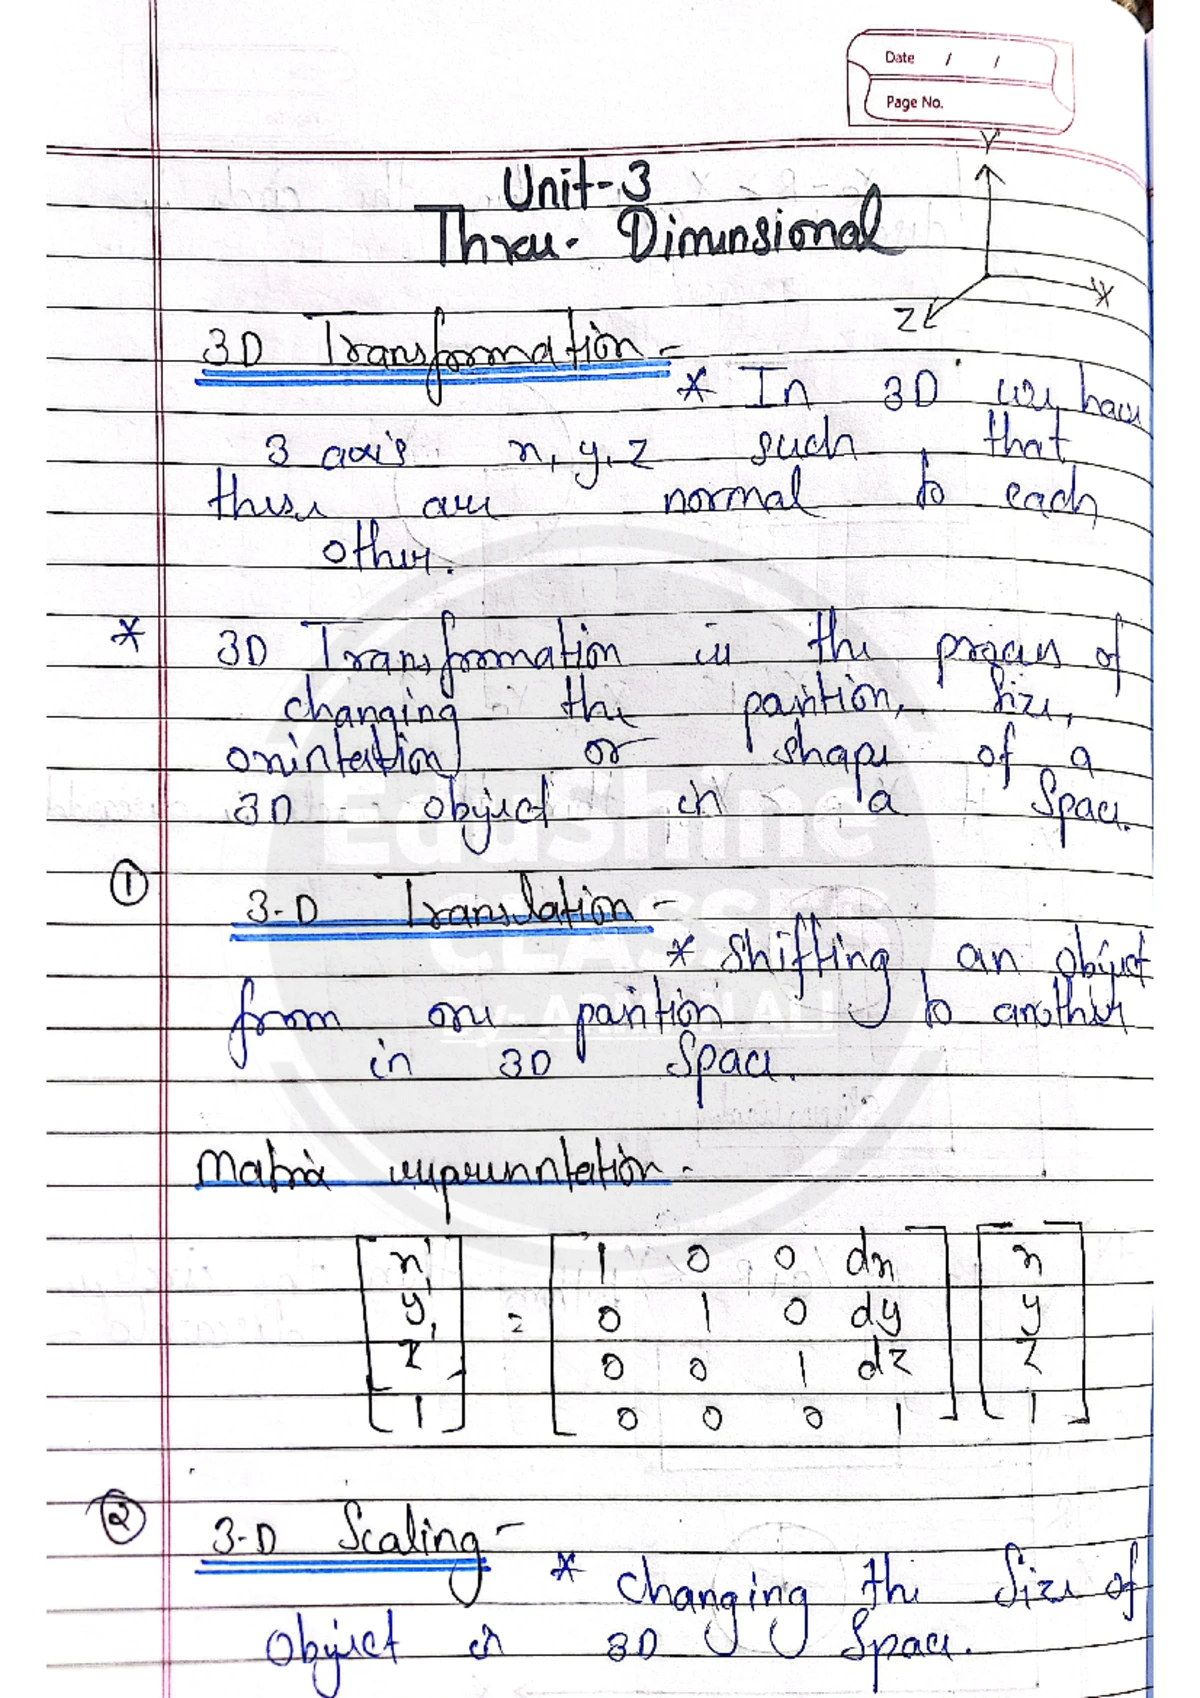 Date / /
Page No.
Unit-3
Three-Dimensional
Y
X
Z
3D Transformation -
* In 3D we have
3 axis x, y, z such that
these are normal to each
other.
* 3D Transformation is the process of
changing the position, size,
orintation or shape of a
3D object in a Space.
① 3-D Translation -
* Shifting an object
from one position to another
in 3D Space.
Matrix representation -
[x' y' z' 1] = [1 0 0 dx] [x]
0 1 0 dy y
0 0 1 dz z
0 0 0 1 1
② 3-D Scaling -
* Changing the Size of
Object in 3D Space.
EduShine
CLASSES